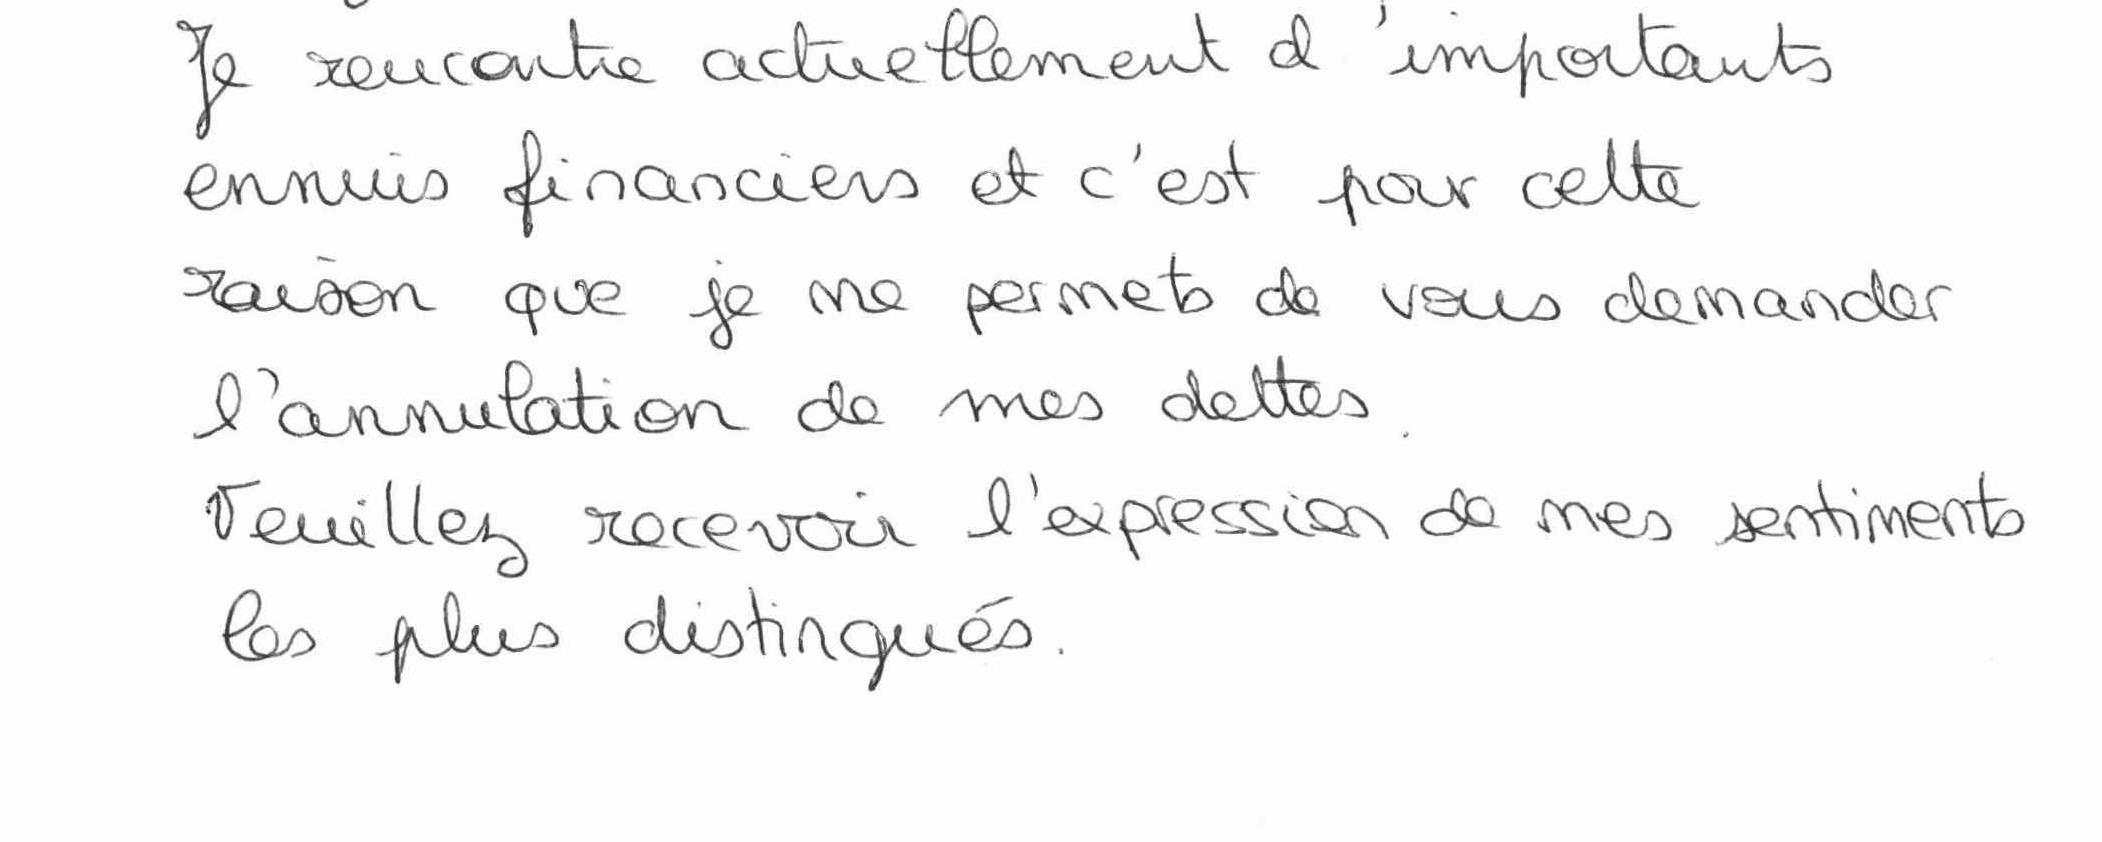 Je rencontre actuellement d'importants
ennuis financiers et c'est pour cette
raison que je me permets de vous demander
l'annulation de mes dettes.
Veuillez recevoir l'expression de mes sentiments
les plus distingués.